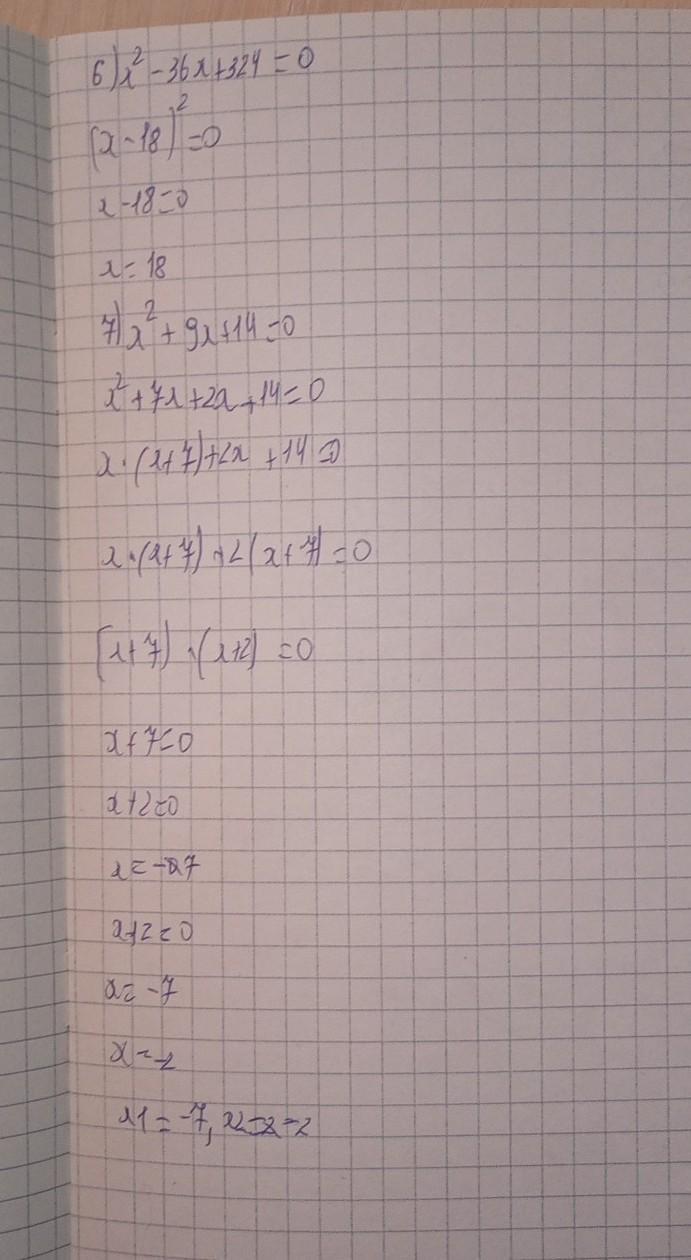 6) x² - 36x + 324 = 0
(x - 18)² = 0
x - 18 = 0
x = 18
7) x² + 9x + 14 = 0
x² + 7x + 2x + 14 = 0
x · (x + 7) + 2x + 14 = 0
x · (x + 7) + 2(x + 7) = 0
(x + 7) · (x + 2) = 0
x + 7 = 0
x + 2 = 0
x = -7
x + 2 = 0
x = -7
x = -2
x1 = -7, x2 = -2